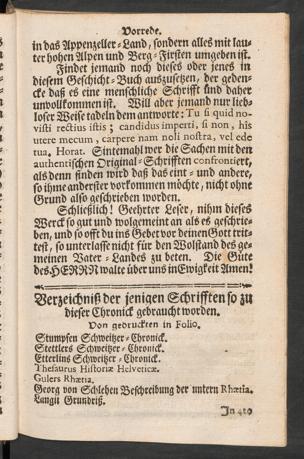 Vorrede.
in das Appenzeller-Land, sondern alles mit lau-
ter hohen Alpen und Berg-Firsten umgeben ist.
Findet jemand noch dieses oder jenes in
diesem Geschicht-Buch auszusetzen, der geden-
cke daß es eine menschliche Schrifft und daher
unvollkommen ist. Will aber jemand nur lieb-
loser Weise tadeln dem antworte: Tu si quid no-
visti rectius istis; candidus imperti, si non, his
utere mecum, carpere nam noli nostra, vel ede
tua. Horat. Sintemahl wer die Sachen mit den
authentischen Original-Schrifften confrontiert,
als denn finden wird daß das eint- und andere,
so ihme anderster vorkommen möchte, nicht ohne
Grund also geschrieben worden.
Schließlich! Geehrter Leser, nihm dieses
Werck so gut und wolgemeint an als es geschrie-
ben, und so offt du ins Gebet vor deinen Gott trit-
test, so unterlasse nicht für den Wolstand des ge-
meinen Vater-Landes zu beten. Die Güte
des HERRN walte über uns in Ewigkeit Amen!
Verzeichniß der jenigen Schrifften so zu
dieser Chronick gebraucht worden.
Von gedruckten in Folio.
Stumpfen Schweitzer-Chronick.
Stettlers Schweitzer-Chronick.
Etterlins Schweitzer-Chronick.
Thesaurus Historiæ Helveticæ.
Gulers Rhætia.
Georg von Schlehen Beschreibung der untern Rhætia.
Langii Grundriß.
In 4to